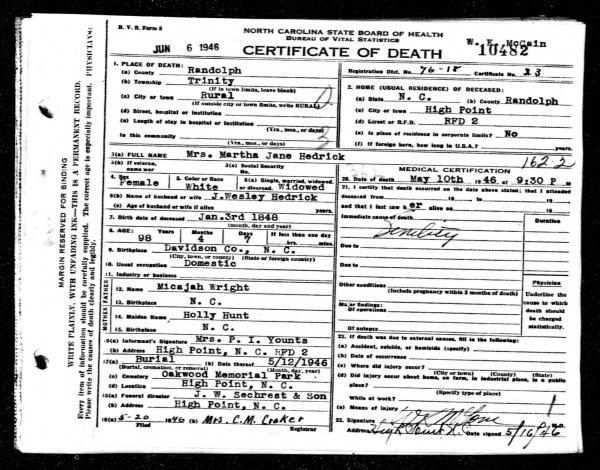 B. V. S. Form 8
NORTH CAROLINA STATE BOARD OF HEALTH
BUREAU OF VITAL STATISTICS
W. K. McCain
JUN 6 1946
CERTIFICATE OF DEATH
10482
1. PLACE OF DEATH:
(a) County Randolph
(b) Township Trinity
(If in town limits, leave blank)
(c) City or town Rural
(If outside city or town limits, write RURAL)
(d) Street, hospital or institution
(e) Length of stay in hospital or institution
(Yrs., mos., or days)
In this community
(Yrs., mos., or days)
Registration Dist. No. 76-18 Certificate No. 23
2. HOME (USUAL RESIDENCE) OF DECEASED:
(a) State N. C. (b) County Randolph
(c) City or town High Point
(d) Street or R.F.D. RFD 2
(e) Is place of residence in corporate limits? No
(f) If foreign born, how long in U.S.A.? years
3(a) FULL NAME Mrs. Martha Jane Hedrick
162-2
3(b) If veteran, name war
3(c) Social Security No.
4. Sex Female
5. Color or Race White
6(a) Single, married, widowed or divorced. Widowed
6(b) Name of husband or wife J.Wesley Hedrick
6(c) Age of husband or wife if alive years.
7. Birth date of deceased Jan.3rd 1848
(month, day and year)
8. AGE: Years 98 Months 4 Days 7 If less than one day hrs. min.
9. Birthplace Davidson Co., N. C.
(City, town, or county) (State or foreign country)
10. Usual occupation Domestic
11. Industry or business
FATHER
12. Name Micajah Wright
13. Birthplace N. C.
MOTHER
14. Maiden Name Holly Hunt
15. Birthplace N. C.
16(a) Informant's Signature Mrs. P. I. Younts
(b) Address High Point, N. C. RFD 2
17(a) Burial (b) Date thereof 5/12/1946
(Burial, cremation, or removal) (Month, day, year)
(c) Cemetery Oakwood Memorial Park
(d) Location High Point, N. C.
18(a) Funeral director J. W. Sechrest & Son
(b) Address High Point, N. C.
19(a) 5-20 1946 Mrs. C.M. Croker
Filed Registrar
MEDICAL CERTIFICATION
20. Date of Death May 10th, 46, at 9:30 P M
21. I certify that death occurred on the date above stated; that I attended
deceased from 19 to 19
and that I last saw her alive on 19
Immediate cause of death Duration
Senility
Due to
Due to
Other conditions
(Include pregnancy within 3 months of death)
Physician
Underline the cause to which death should be charged statistically.
Major findings:
Of operations
Of autopsy
22. If death was due to external causes, fill in the following:
(a) Accident, suicide, or homicide (specify)
(b) Date of occurrence
(c) Where did injury occur?
(City or town) (County) (State)
(d) Did injury occur about home, on farm, in industrial place, in a public place?
(Specify type of place)
While at work?
(e) Means of injury
23. Signature
Address High Point N.C. Date signed 5/16/46
MARGIN RESERVED FOR BINDING
WRITE PLAINLY, WITH UNFADING INK—THIS IS A PERMANENT RECORD.
Every item of information should be carefully supplied. The correct age is especially important. PHYSICIANS:
Please write the causes of death clearly and legibly.